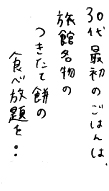 30代最初のごはんは、
旅館名物の
つきたて餅の
食べ放題を‥